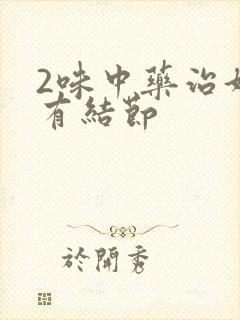 2味中藥治
有結節
於開秀